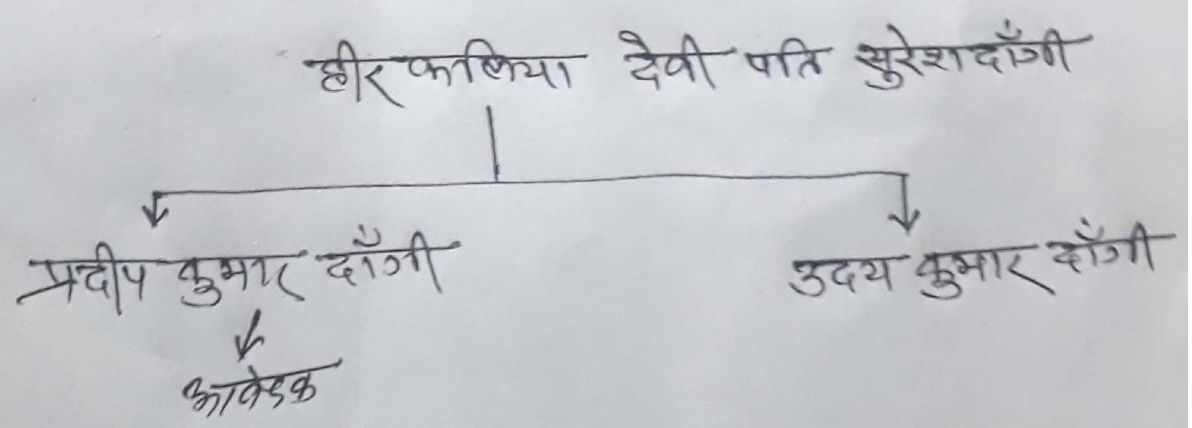 हीर कलिया देवी पति सुरेश दाँगी
प्रदीप कुमार दाँगी
उदय कुमार दाँगी
आवेदक